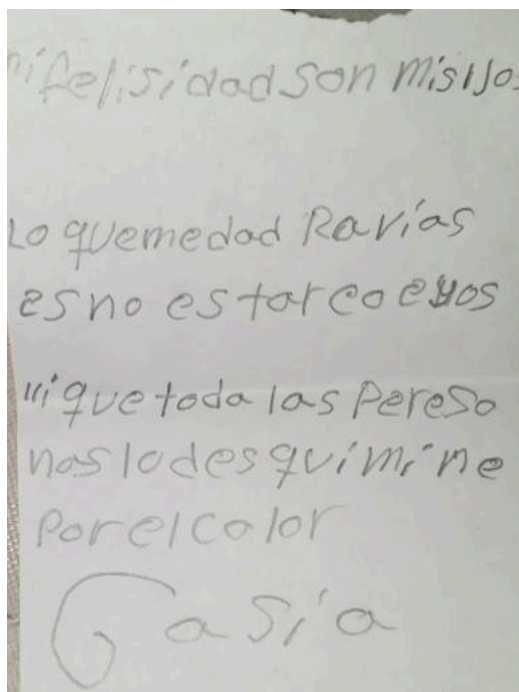 mi felisidad son misijos
Lo quemedad Ravias
es no estar co eyos
iique toda las Pereso
nas lo des quimine
Por el color
Gasia